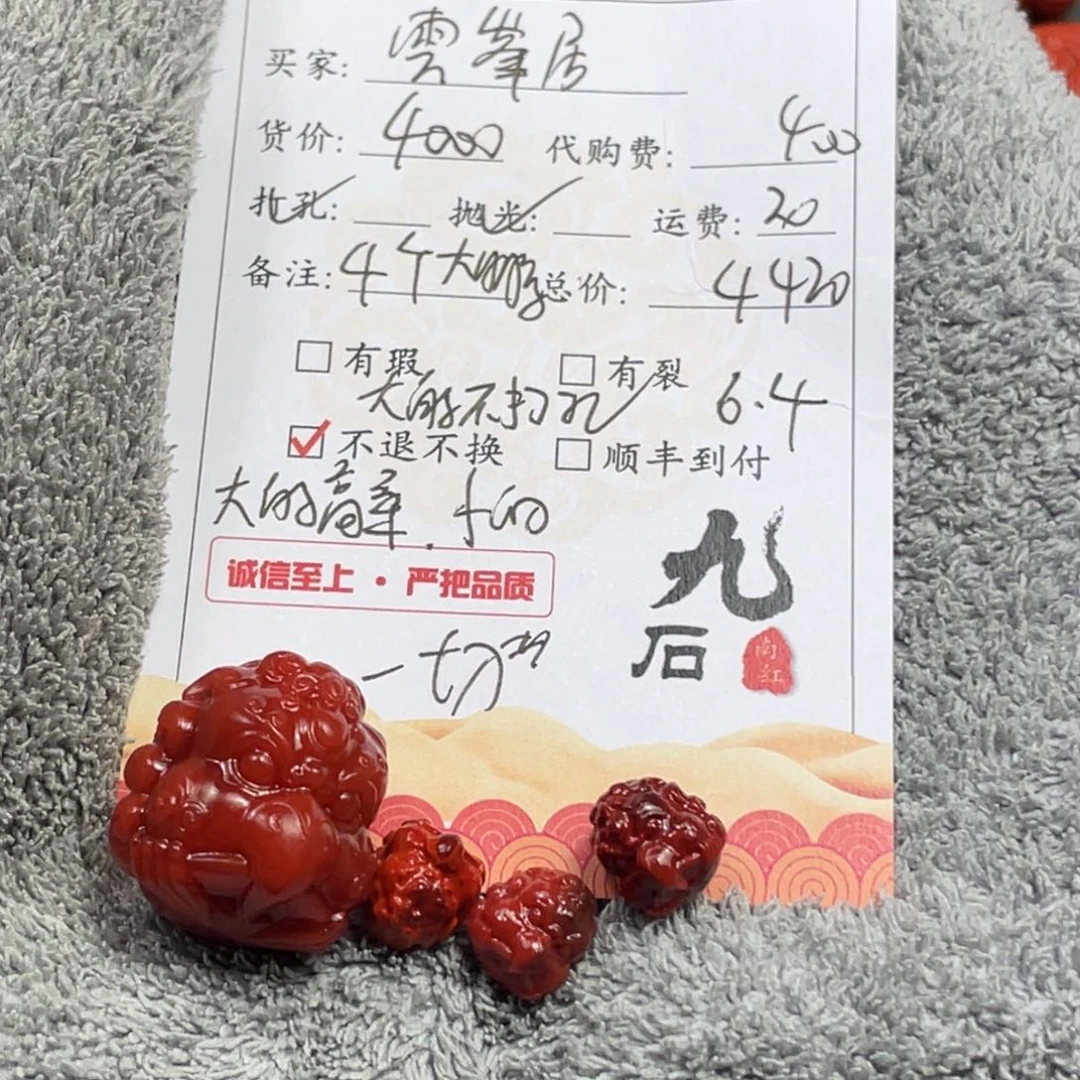 买家: 雲峯居
货价: 4000 代购费: 400
打孔: 抛光: 运费: 20
备注: 4个大的 总价: 4420
有瑕 有裂
大的不打孔 6.4
不退不换 顺丰到付
大的高率.小的
诚信至上·严把品质
一切
九
石
南红